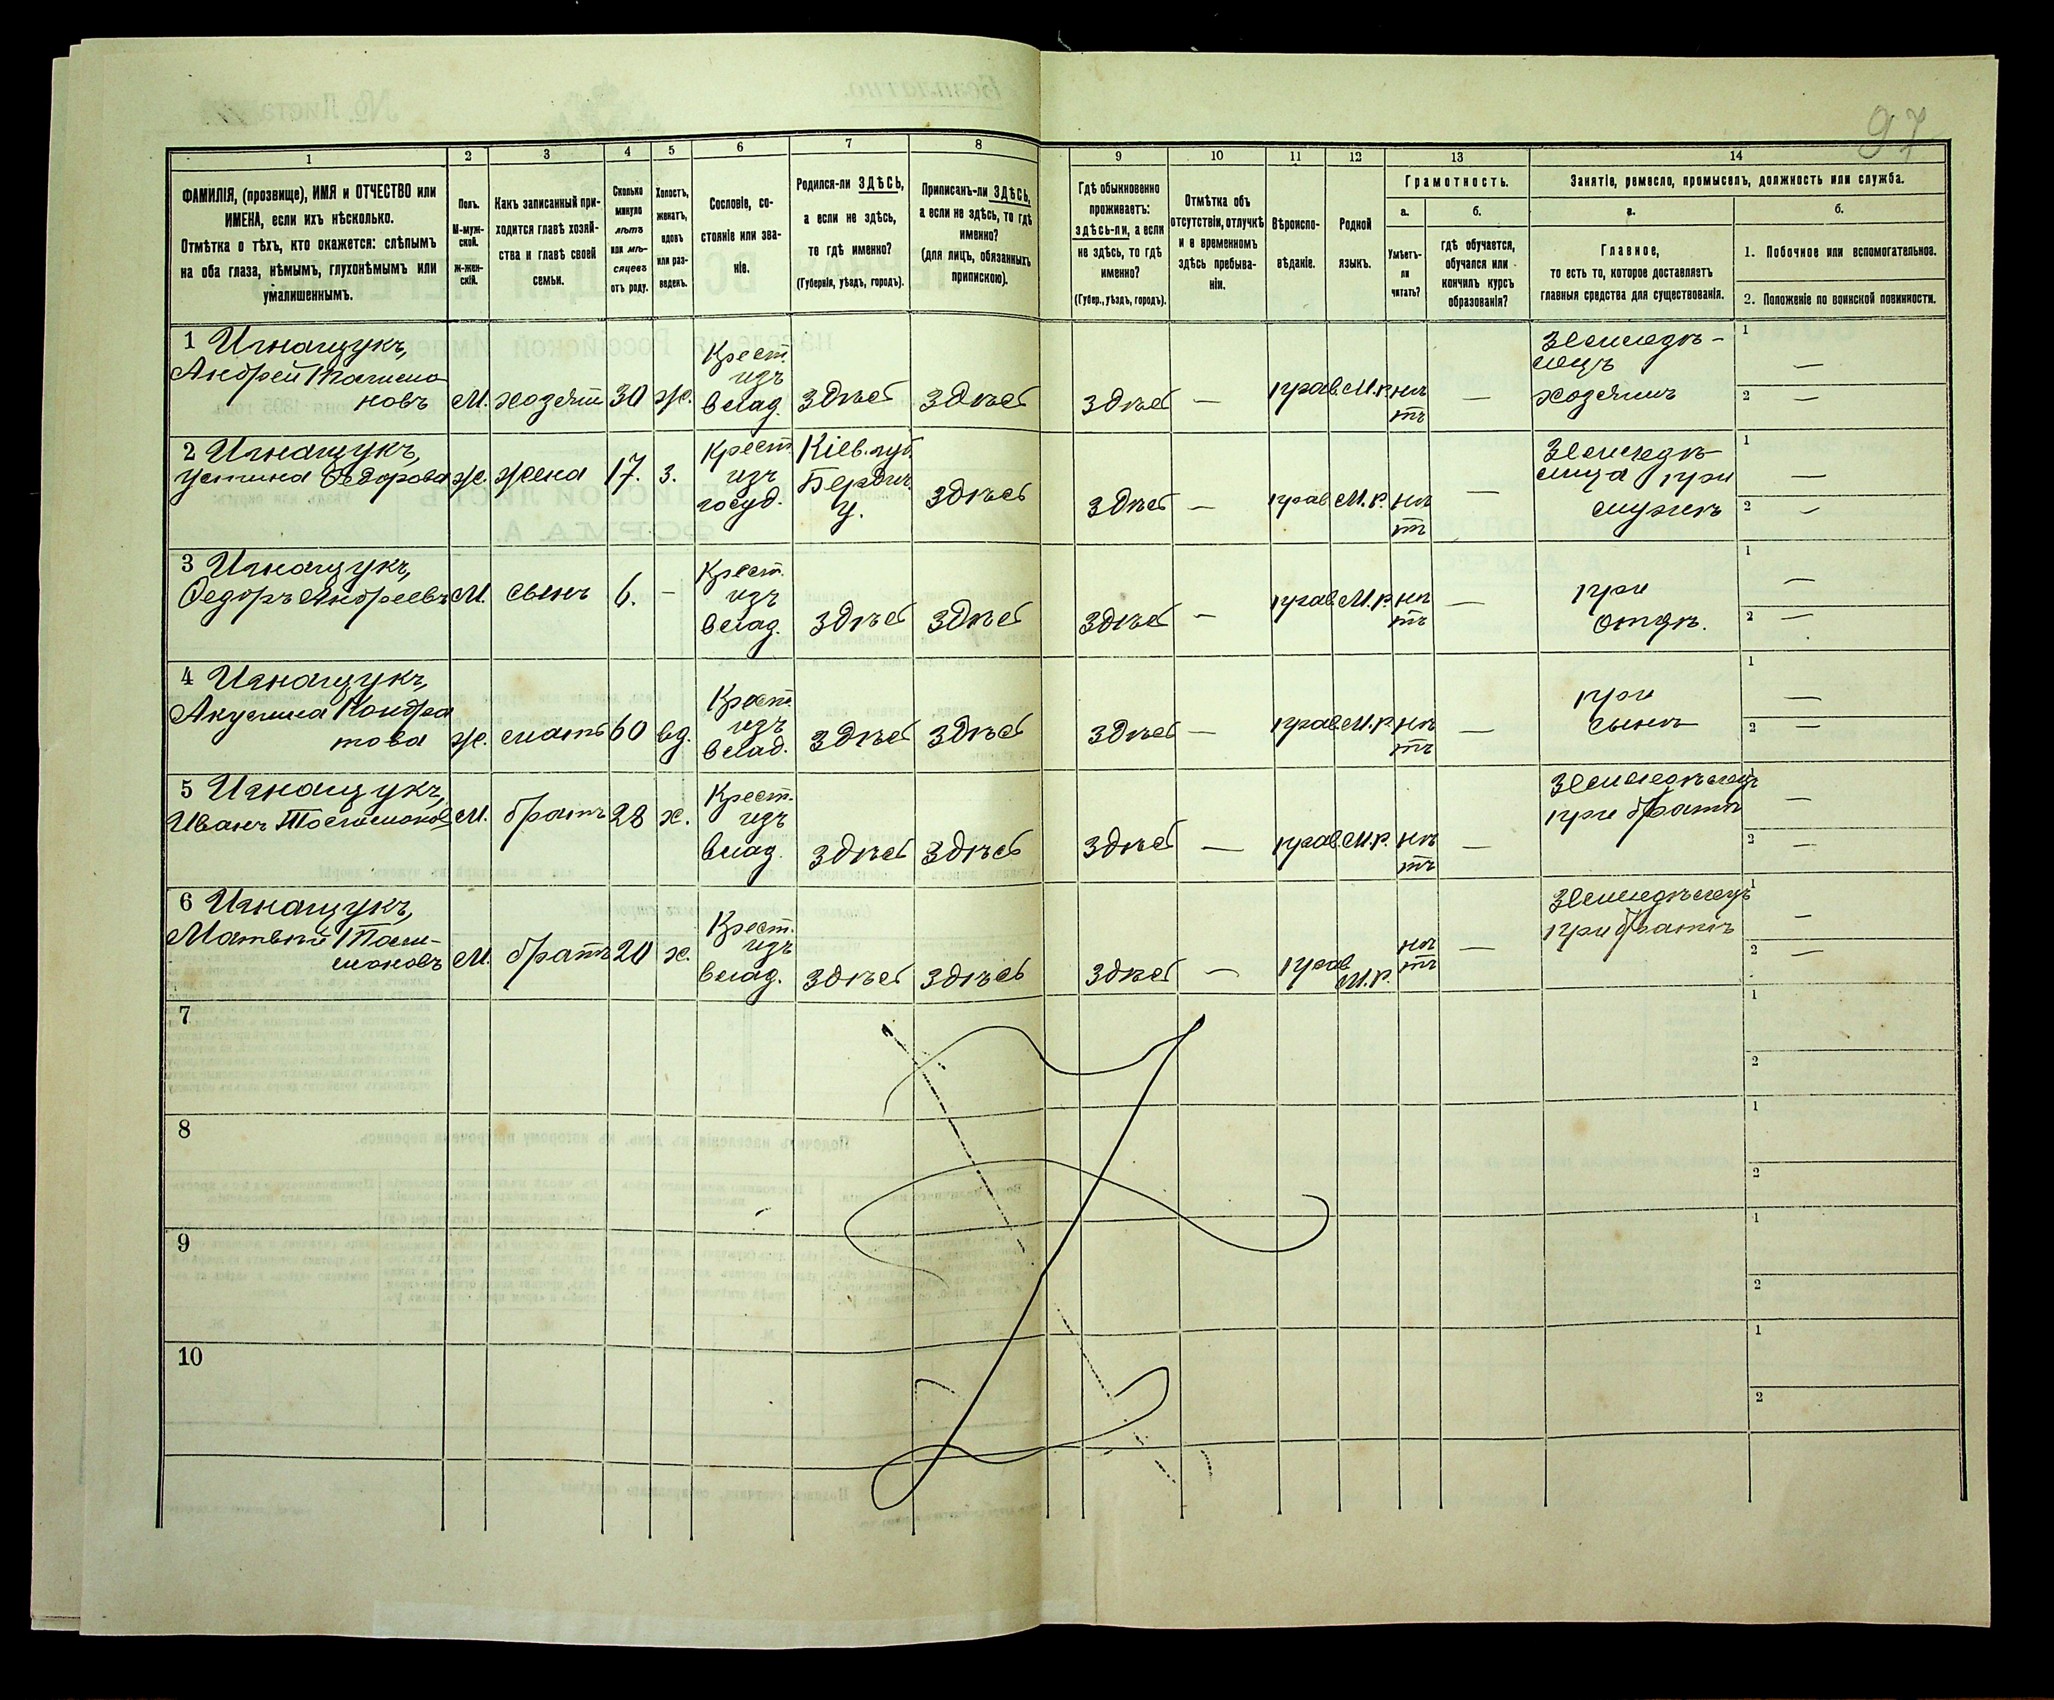 97
1
2
3
4
5
6
7
8
9
10
11
12
13
14
ФАМИЛІЯ, (прозвище), ИМЯ и ОТЧЕСТВО или
ИМЕНА, если ихъ нѣсколько.
Отмѣтка о тѣхъ, кто окажется: слѣпымъ
на оба глаза, нѣмымъ, глухонѣмымъ или
умалишеннымъ.
Полъ.
М-муж-
ской.
Ж-жен-
скій.
Какъ записанный при-
ходится главѣ хозяй-
ства и главѣ своей
семьи.
Сколько
минуло
лѣтъ
или мѣ-
сяцевъ
отъ роду.
Холостъ,
женатъ,
вдовъ
или раз-
веденъ.
Сословіе, со-
стояніе или зва-
ніе.
Родился-ли ЗДѢСЬ,
а если не здѣсь,
то гдѣ именно?
(Губернія, уѣздъ, городъ).
Приписанъ-ли ЗДѢСЬ,
а если не здѣсь, то гдѣ
именно?
(для лицъ, обязанныхъ
припискою).
Гдѣ обыкновенно
проживаетъ:
здѣсь-ли, а если
не здѣсь, то гдѣ
именно?
(Губер., уѣздъ, городъ).
Отмѣтка объ
отсутствіи, отлучкѣ
и о временномъ
здѣсь пребыва-
ніи.
Вѣроиспо-
вѣданіе.
Родной
языкъ.
Грамотность.
а.
б.
Умѣетъ-
ли
читать?
гдѣ обучается,
обучался или
кончилъ курсъ
образованія?
Занятіе, ремесло, промыселъ, должность или служба.
а.
б.
Главное,
то есть то, которое доставляетъ
главныя средства для существованія.
1. Побочное или вспомогательное.
2. Положеніе по воинской повинности.
1 Игнащукъ,
Андрей
новъ
М. хозяин 30 ж.
Крест.
изъ
влад.
здѣсь здѣсь здѣсь — прав. М.р. нѣ
тъ
—
Земледѣ-
лецъ
хозяинъ
1 —
2 —
2 Игнащукъ,
Устина Ѳедорова ж. жена 17. з.
Крест.
изъ
госуд.
Кіев. губ.
Бердич.
у.
здѣсь здѣсь — прав. М.р. нѣ
тъ
—
Земледѣ-
лица при
мужѣ
1 —
2 —
3 Игнащукъ,
Ѳедоръ Андреевъ М. сынъ 6. —
Крест.
изъ
влад.
здѣсь здѣсь здѣсь — прав. М.р. нѣ
тъ
—
при
отцѣ.
1 —
2 —
4 Игнащукъ,
Акулина Кондра
това ж. мать 60 вд.
Крест.
изъ
влад.
здѣсь здѣсь здѣсь — прав. М.р. нѣ
тъ
—
при
сынѣ
1 —
2 —
5 Игнащукъ,
Иванъ М. братъ 28 х.
Крест.
изъ
влад.
здѣсь здѣсь здѣсь — прав. М.р. нѣ
тъ
—
Земледѣлецъ
при братѣ
1 —
2 —
6 Игнащукъ,
Матвѣй
моновъ М. братъ 20 х.
Крест.
изъ
влад.
здѣсь здѣсь здѣсь — прав. М.р. нѣ
тъ
—
Земледѣлецъ
при братѣ
1 —
2 —
7
1
2
8
1
2
9
1
2
10
1
2